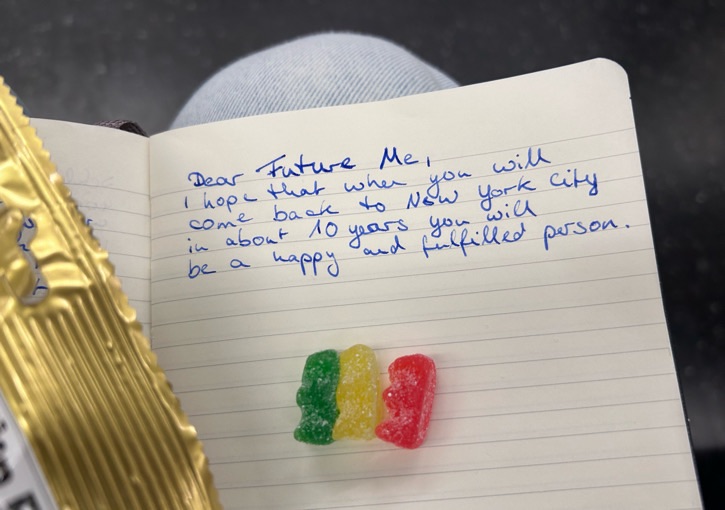 Dear Future Me,
I hope that when you will
come back to New York City
in about 10 years you will
be a happy and fulfilled person.